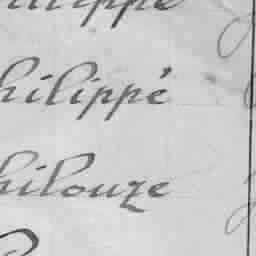 hilippe
hilippé
hilouze